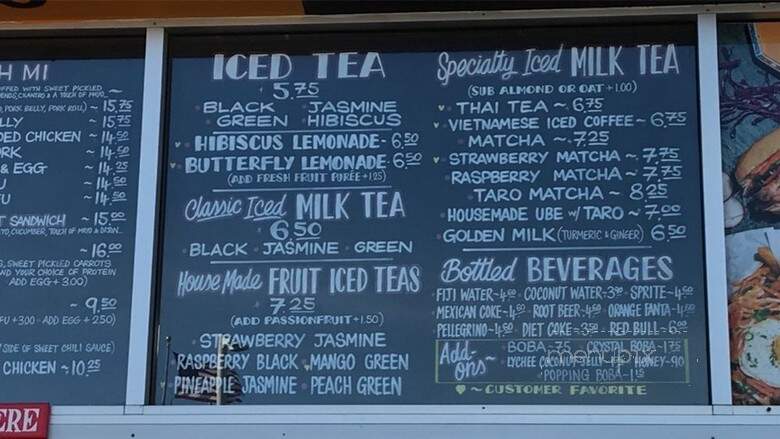 H MI
FED WITH SWEET PICKLED
, PORK BELLY, PORK ROLL) ~ 15.75
LLY ~ 15.75
DED CHICKEN ~ 14.50
RK ~ 14.50
& EGG ~ 14.25
~ 14.50
~ 14.25
T SANDWICH ~ 15.00
~ 16.00
, SWEET PICKLED CARROTS
ND YOUR CHOICE OF PROTEIN
ADD EGG +3.00)
~ 9.50
FU +3.00 · ADD EGG +2.50)
SIDE OF SWEET CHILI SAUCE)
CHICKEN ~ 10.25
ERE
ICED TEA
5.75
BLACK · JASMINE
GREEN · HIBISCUS
HIBISCUS LEMONADE - 6.50
BUTTERFLY LEMONADE - 6.50
(ADD FRESH FRUIT PURÉE +1.25)
Classic Iced MILK TEA
6.50
BLACK · JASMINE · GREEN
House Made FRUIT ICED TEAS
7.25
(ADD PASSIONFRUIT +1.50)
STRAWBERRY JASMINE
RASPBERRY BLACK · MANGO GREEN
PINEAPPLE JASMINE · PEACH GREEN
Specialty Iced MILK TEA
(SUB ALMOND OR OAT +1.00)
THAI TEA ~ 6.75
VIETNAMESE ICED COFFEE ~ 6.75
MATCHA ~ 7.25
STRAWBERRY MATCHA ~ 7.75
RASPBERRY MATCHA ~ 7.75
TARO MATCHA ~ 8.25
HOUSEMADE UBE W/ TARO ~ 7.00
GOLDEN MILK (TURMERIC & GINGER) 6.50
Bottled BEVERAGES
FIJI WATER - 4.50 · COCONUT WATER - 3.50 · SPRITE - 4.50
MEXICAN COKE - 4.50 · ROOT BEER - 4.50 · ORANGE FANTA - 4.50
PELLEGRINO - 4.50 · DIET COKE - 3.50 · RED BULL - 6.00
Add-ons ~ BOBA - .75 · CRYSTAL BOBA - 1.75
LYCHEE COCONUT JELLY HONEY - .90
POPPING BOBA - 1.25
♥ ~ CUSTOMER FAVORITE
menupix